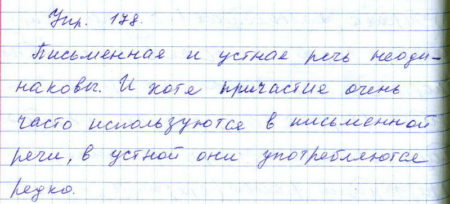 Упр. 178.
Письменная и устная речь неоди-
наковы. И хотя причастие очень
часто используются в письменной
речи, в устной они употребляются
редко.